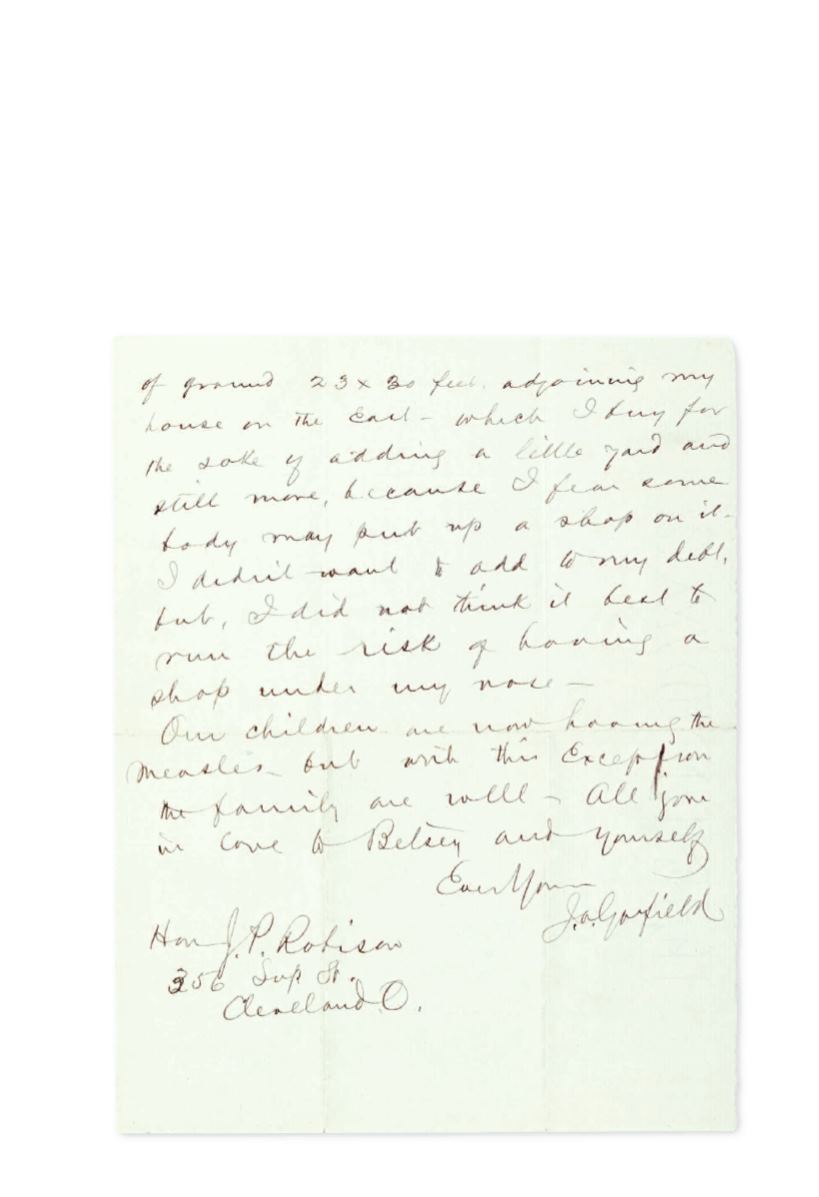 of ground 23 x 30 feet. adjoining my
house on the East - which I buy for
the sake of adding a little yard and
still more, because I fear some
body may put up a shop on it.
I didn't want to add to my debt,
but, I did not think it best to
run the risk of having a
shop under my nose -
Our children are now having the
measles - but with this Exception
the family are well - All join
in love to Betsey and yourself
Ever Yours
J. A. Garfield
Hon J. P. Robison
356 Sup St.
Cleveland O.